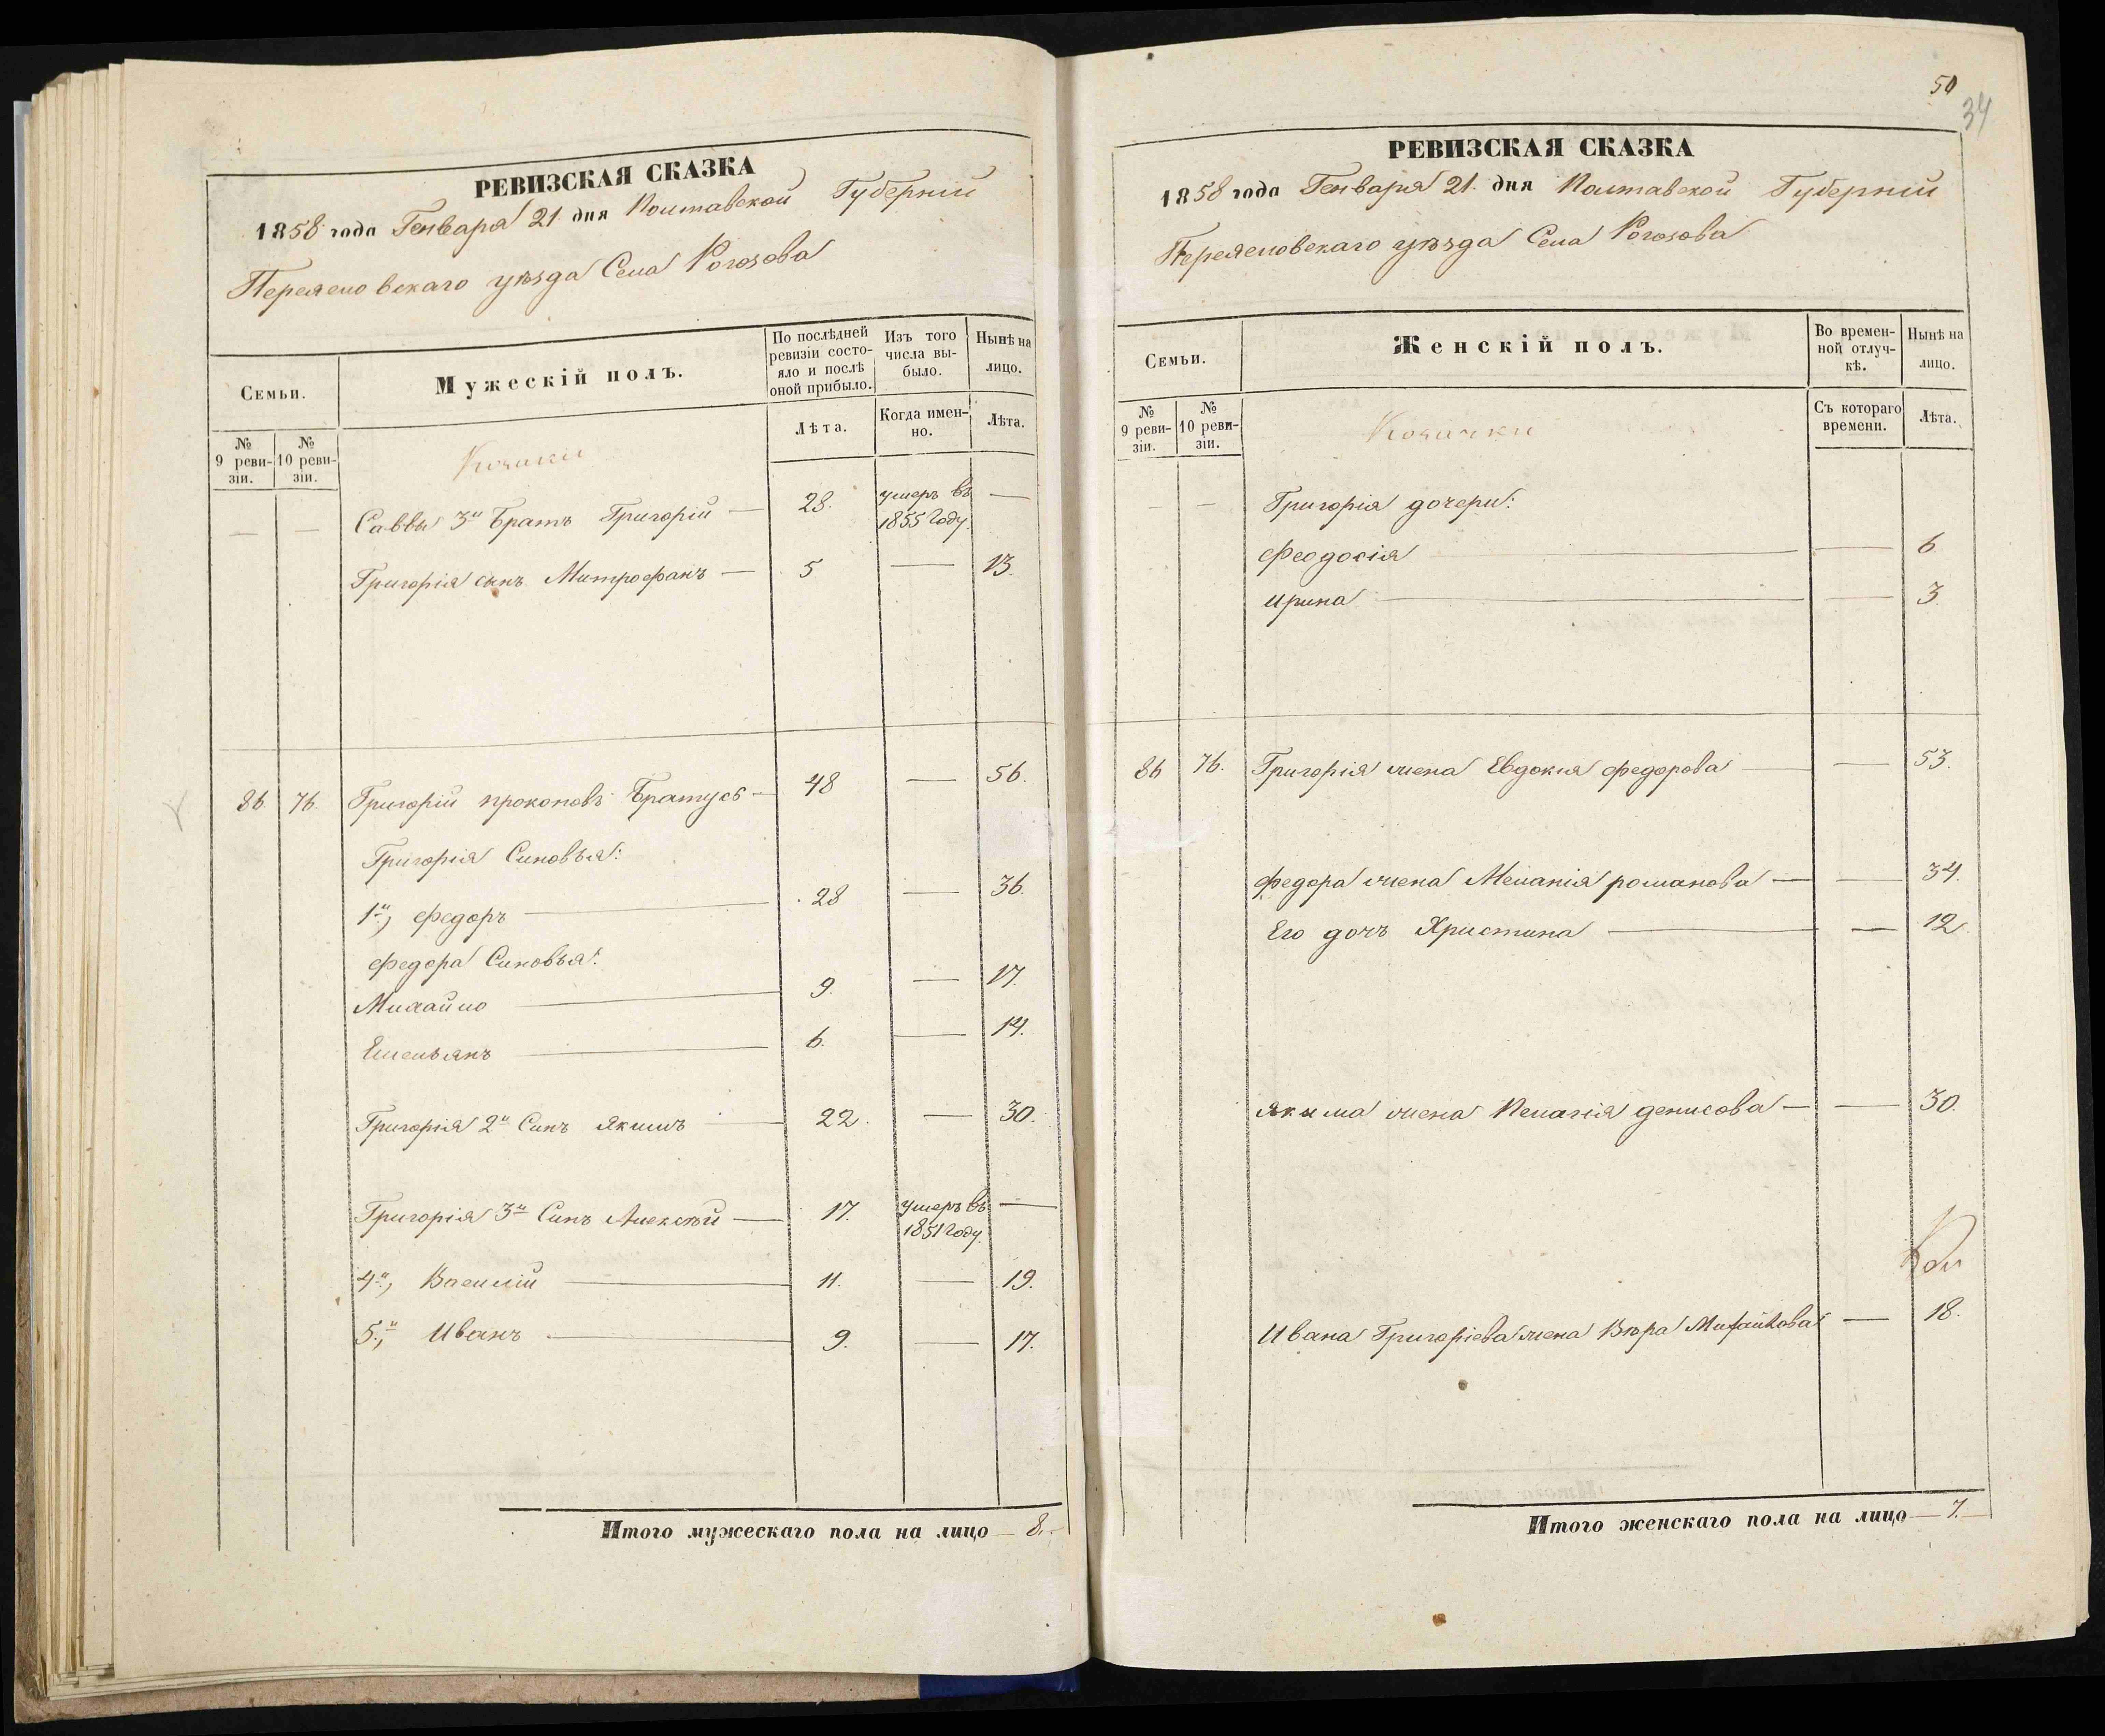 РЕВИЗСКАЯ СКАЗКА
1858 года Генваря 21 дня Полтавской Губерніи
Переяславскаго уѣзда Села Рогозова
Семьи.
Мужескій полъ.
По послѣдней ревизіи состояло и послѣ оной прибыло.
Изъ того числа выбыло.
Нынѣ на лицо.
№ 9 ревизіи.
№ 10 ревизіи.
Козаки
Лѣта.
Когда именно.
Лѣта.
— — Саввы 3й Братъ Григорій — 28. умеръ въ 1855 Году —
Григорія сынъ Митрофанъ — 5 — 13.
86 76. Григорій Прокоповъ Братусь — 48 — 56.
Григорія Синовья:
1й, Федоръ — 28 — 36.
Федора Синовья:
Михайло — 9. — 17.
Емельянъ — 6. — 14.
Григорія 2й Синъ Якимъ — 22. — 30.
Григорія 3й Синъ Алексѣй — 17. умеръ въ 1851 Году. —
4й, Василій — 11. — 19.
5й, Иванъ — 9. — 17.
Итого мужескаго пола на лицо — 8. —
50
34
РЕВИЗСКАЯ СКАЗКА
1858 года Генваря 21. дня Полтавской Губерніи
Переяславскаго уѣзда Села Рогозова
Семьи.
Женскій полъ.
Во временной отлучкѣ.
Нынѣ на лицо.
№ 9 ревизіи.
№ 10 ревизіи.
Козачки
Съ котораго времени.
Лѣта.
— — Григорія дочери:
Феодосія — — 6
Ирина — — 3.
86 76. Григорія жена Евдокия Федорова — — 53.
Федора жена Меланія Романова — — 34.
Его дочъ Христина — — 12
Якима жена Пелагія Денисова — — 30.
Ивана Григоріева жена Вѣра Михайлова — 18.
Итого женскаго пола на лицо — 7. —